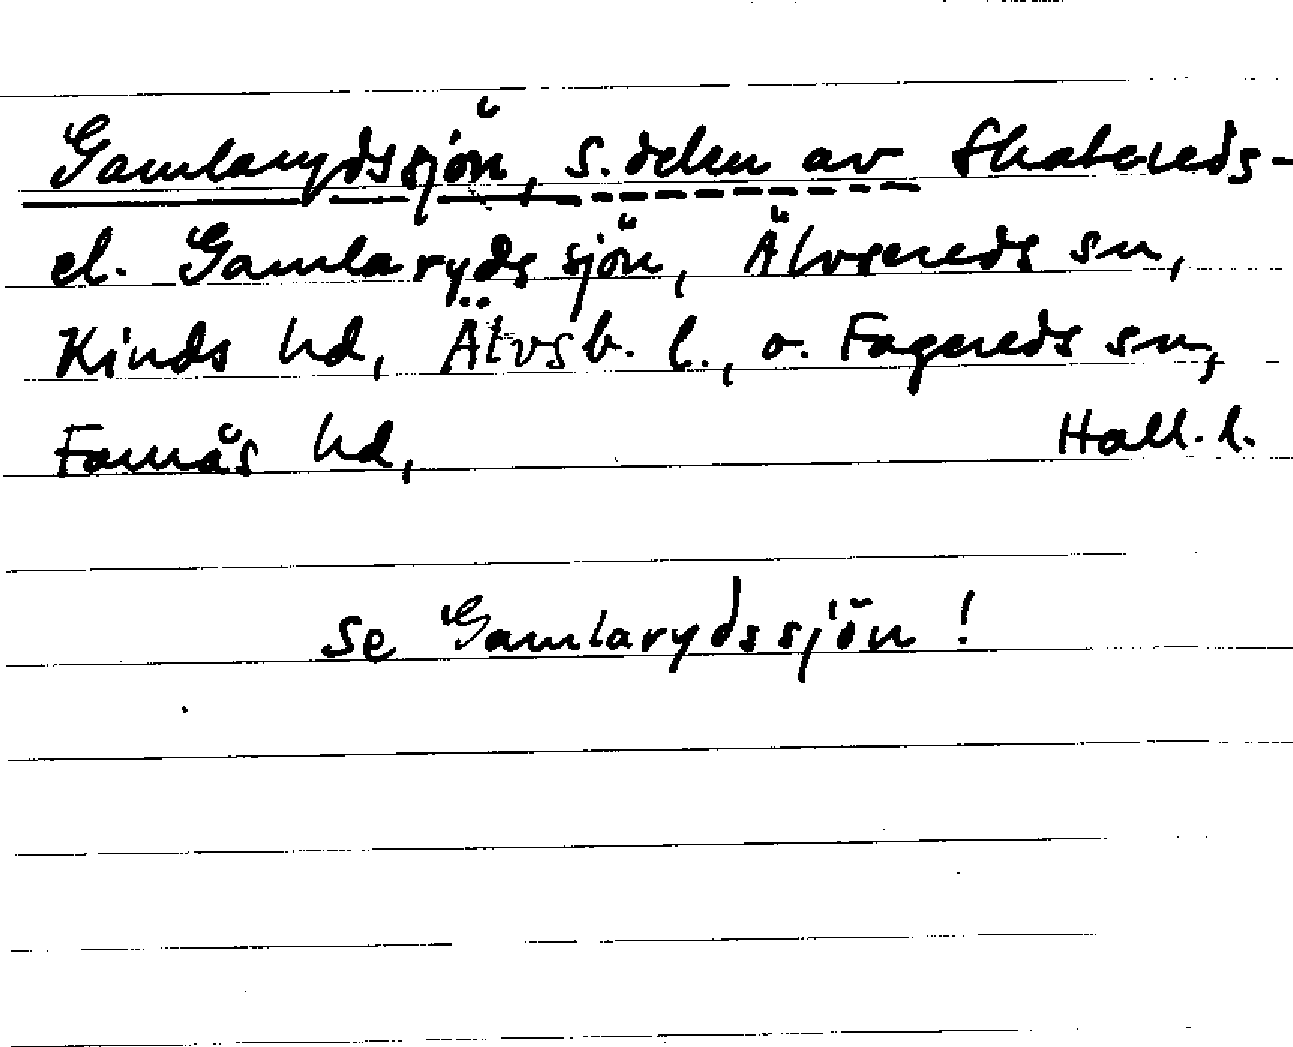 Gamlarydssjön, S. delen av Skatereds-
el. Gamlarydssjön, Älvsereds sn,
Kinds hd, Älvsb. l., o. Fagereds sn,
Faurås hd, Hall. l.
Se Gamlarydssjön!